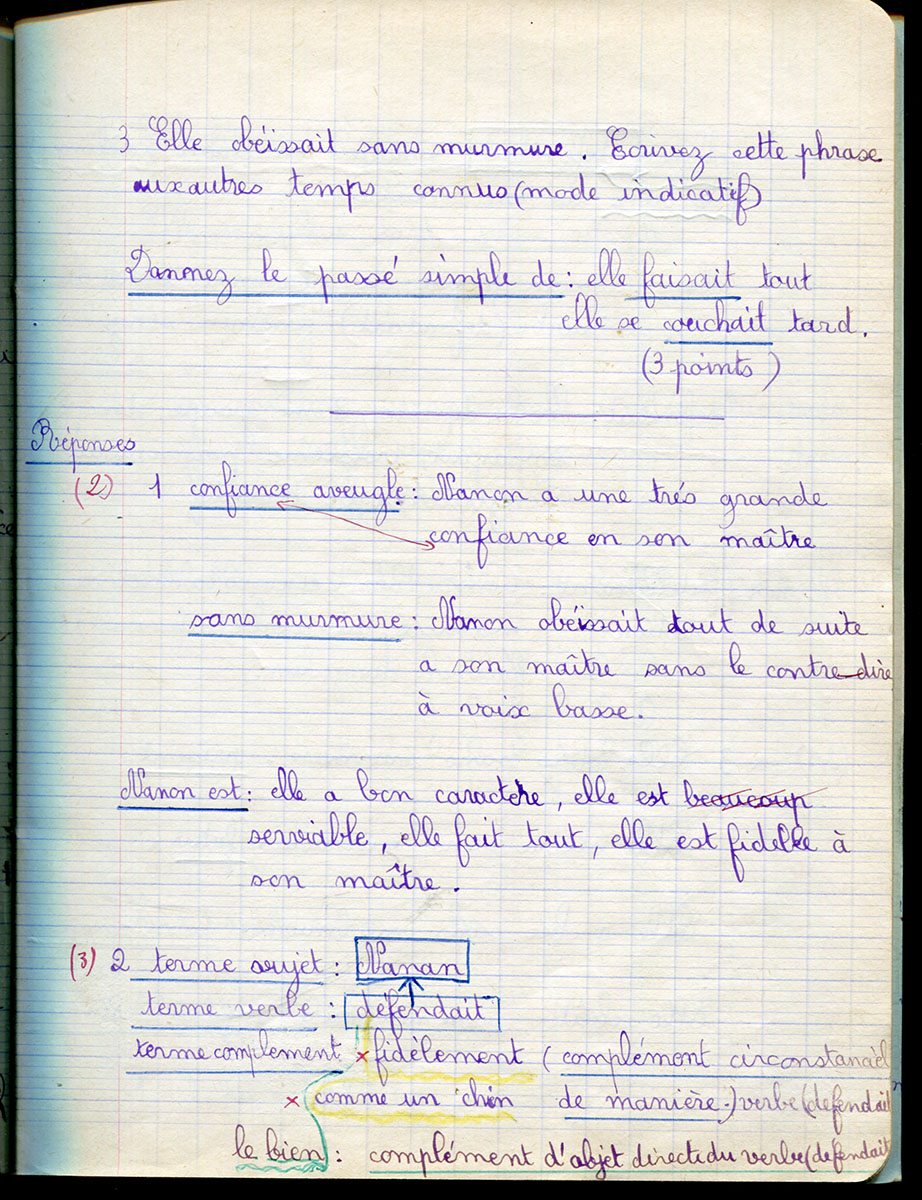 3 Elle obéissait sans murmure. Ecrivez cette phrase
aux autres temps connus (mode indicatif)
Donnez le passé simple de : elle faisait tout
elle se couchait tard.
(3 points)
Réponses
(2) 1 confiance aveugle : Nanon a une trés grande
confiance en son maître
sans murmure : Nanon obéissait tout de suite
a son maître sans le contre-dire
à voix basse.
Nanon est : elle a bon caractère, elle est beaucoup
serviable, elle fait tout, elle est fidelle à
son maître.
(3) 2 terme sujet : Nanon
terme verbe : defendait
terme complement × fidèlement (complément circonstanciel
× comme un chien de manière.) verbe (defendait
le bien : complément d'objet direct du verbe (defendait